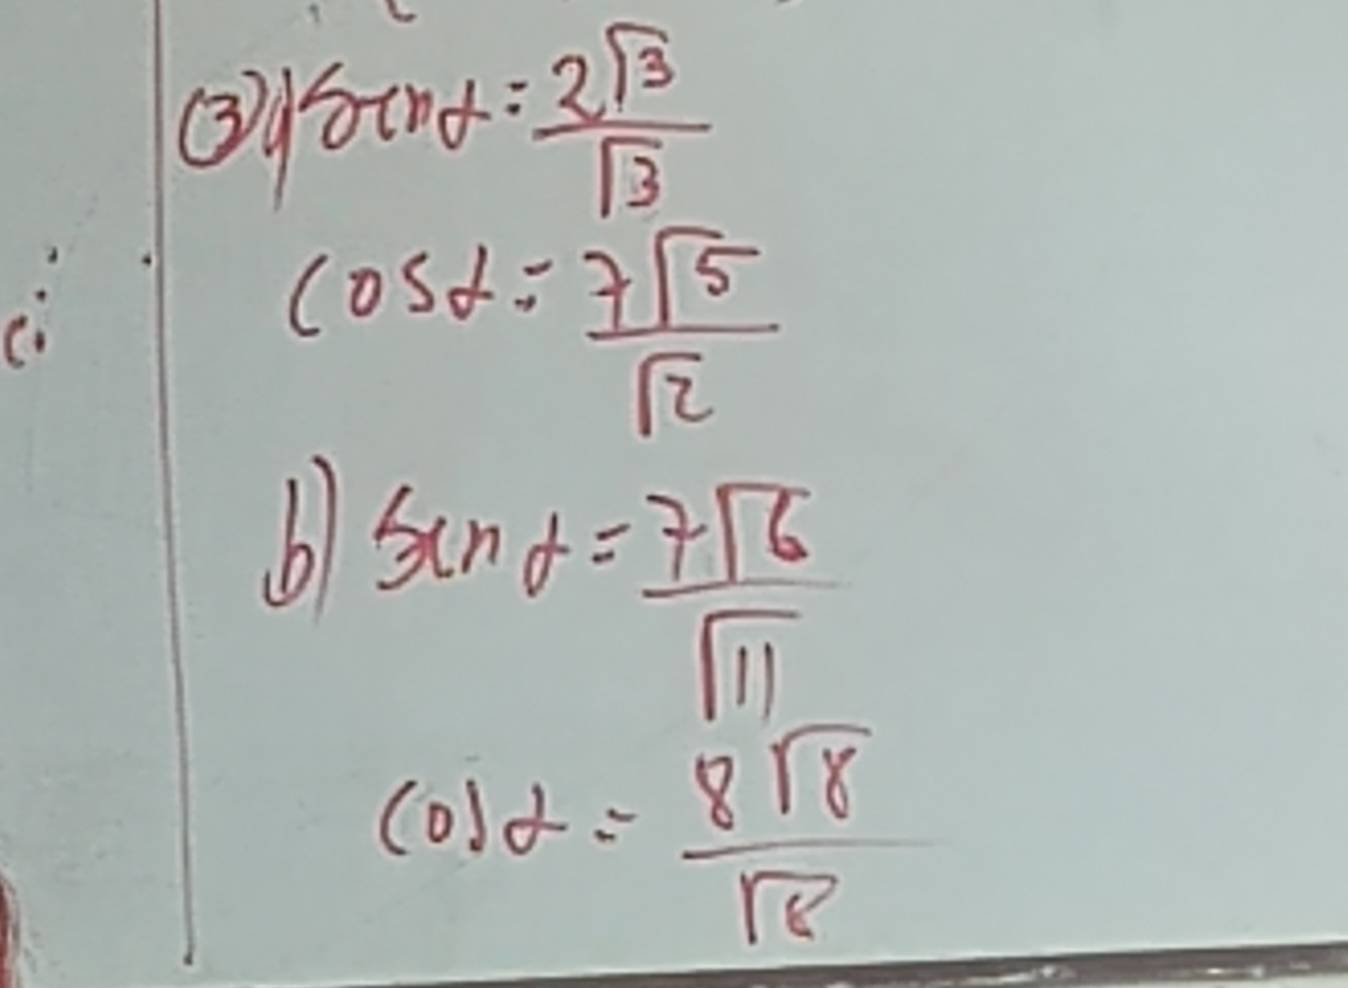 ③ a) sin α = 2√3 / √3
cos α = 7√5 / √2
b) sin α = 7√6 / √11
cos α = 8√8 / √8